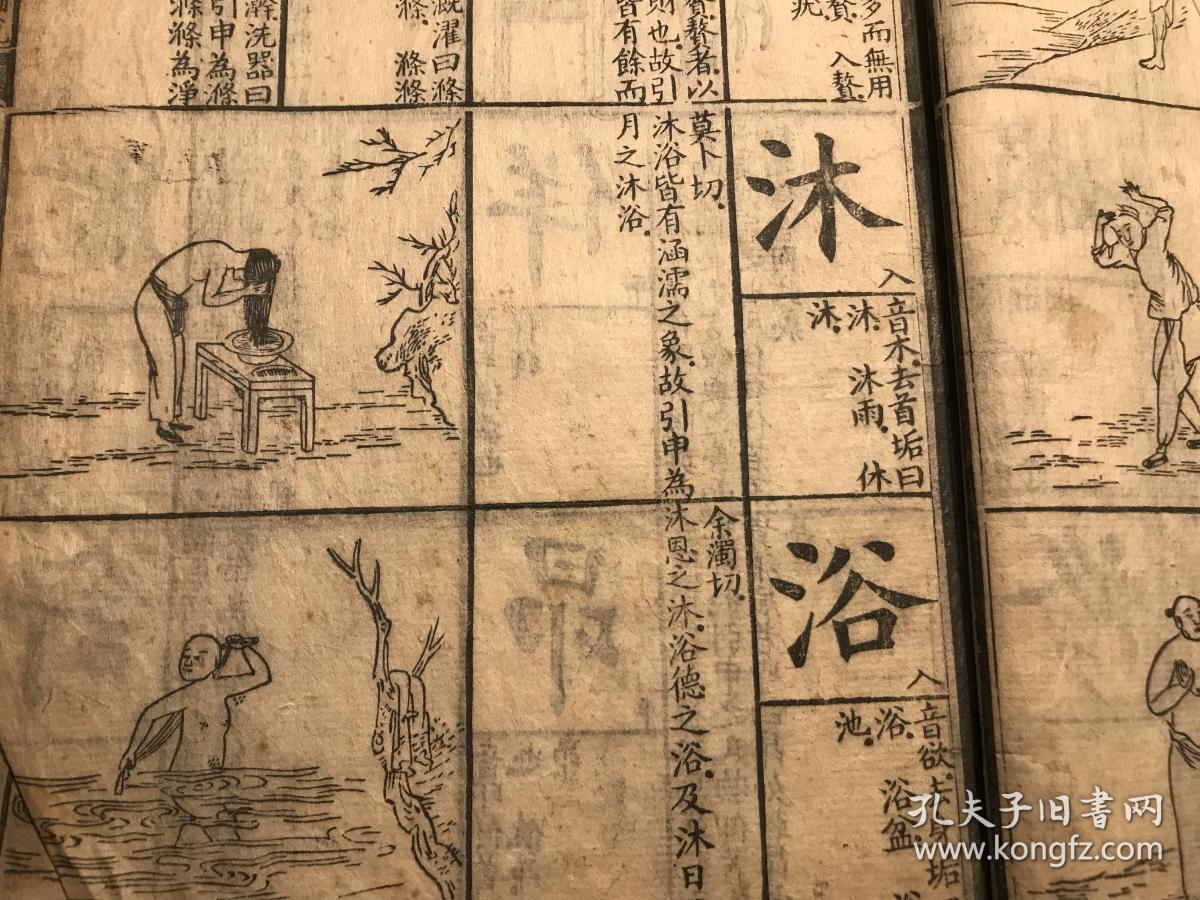 多而無用
贅． 入贅．
疣．
贅贅者．以
則也．故引
皆有餘而
溉濯曰滌
滌． 滌滌
滌洗器曰
引申為滌
滌滌為淨
沐
入
音木．去首垢曰
沐． 沐雨． 休
沐．
莫卜切．
沐浴皆有涵濡之象．故引申為沐恩之沐．浴德之浴．及沐日
月之沐浴．
浴
入
音欲．去身垢
浴． 浴盆．
池．
余濁切．
孔夫子旧书网
www.kongfz.com